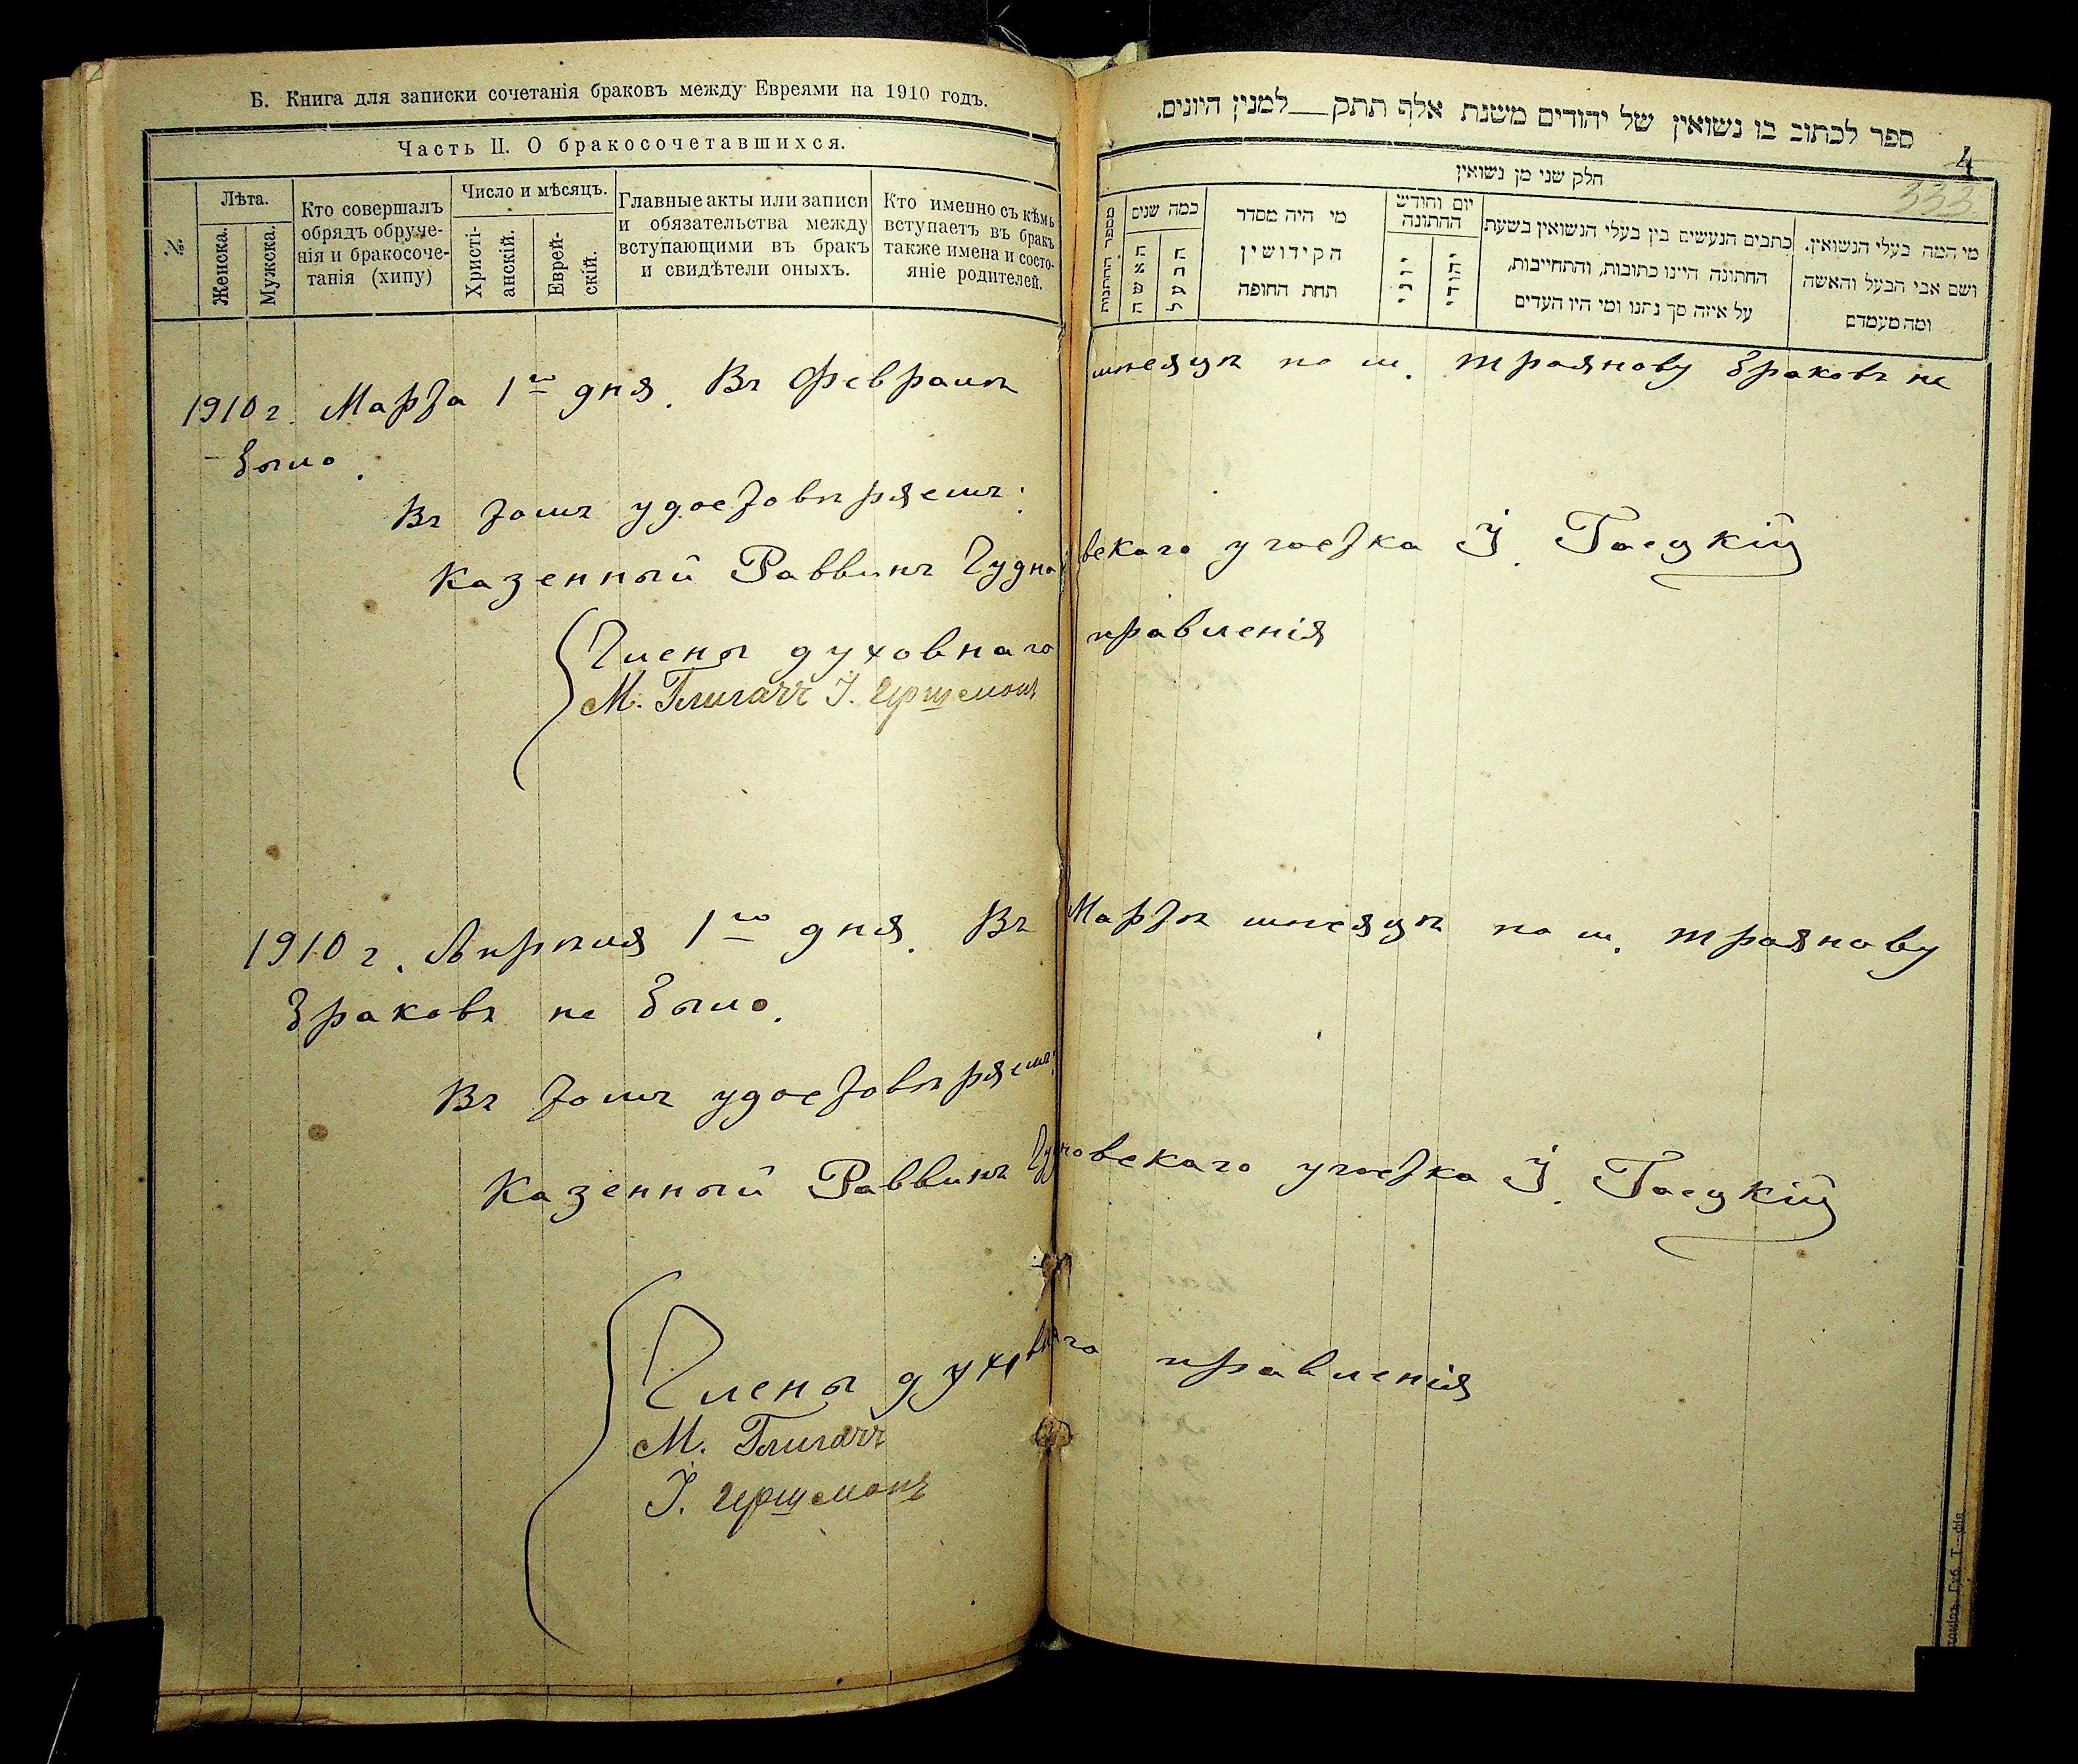 Б. Книга для записки сочетанія браковъ между Евреями на 1910 годъ.
Часть II. О бракосочетавшихся.
№
Лѣта.
Женска.
Мужска.
Кто совершалъ
обрядъ обруче-
нія и бракосоче-
танія (хипу)
Число и мѣсяцъ.
Христі-
анскій.
Еврей-
скій.
Главные акты или записи
и обязательства между
вступающими въ бракъ
и свидѣтели оныхъ.
Кто именно съ кѣмъ
вступаетъ въ бракъ
также имена и состо-
яніе родителей.
ספר לכתוב בו נשואין של יהודים משנת אלף תתק__למנין היונים.
4
333
חלק שני מן נשואין
מספר החתונות
כמה שנים
האשה
הבעל
מי היה מסדר
הקידושין
תחת החופה
יום וחודש
החתונה
יוני
יהודי
כתבים הנעשים בין בעלי הנשואין בשעת
החתונה היינו כתובות, והתחייבות,
על איזה סך נתנו ומי היו העדים
מי המה בעלי הנשואין.
ושם אבי הבעל והאשה
ומה מעמדם
1910 г. Марта 1го дня. Въ Февралѣ мѣсяцѣ по м. Троянову браковъ не
было.
Въ томъ удостовѣряемъ:
Казенный Раввинъ Чудновскаго участка І. Гаецкій
Члены духовнаго правленія
1910 г. Апрѣля 1го дня. Въ Мартѣ мѣсяцѣ по м. Троянову
браковъ не было.
Въ томъ удостовѣряемъ:
Казенный Раввинъ Чудновскаго участка І. Гаецкій
Члены духовнаго правленія
Губ. Т—фія